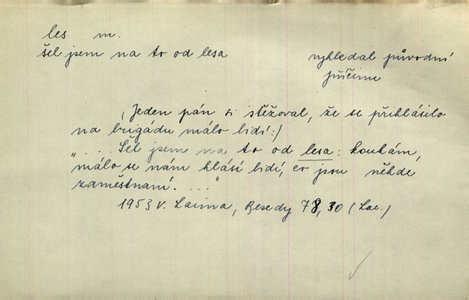 les m.
šel jsem na to od lesa
vyhledal původní
příčinu
(Jeden pán si stěžoval, že se přihlásilo
na brigádu málo lidí:)
". . . . Šel jsem na to od lesa: koukám,
málo se nám hlásí lidí, co jsou někde
zaměstnaní. . . ."
1953 V. Lacina, Besedy 78, 30 (Lac.)